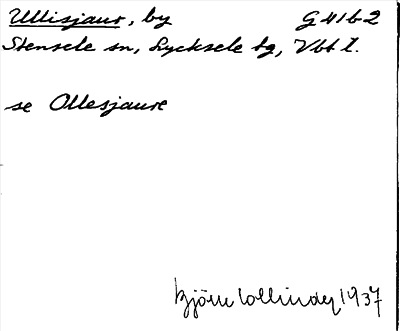 Ullisjaur, by G41b2
Stensele sn, Lycksele tg, Vbt l.
se Ollesjaure
Björn Collinder 1937